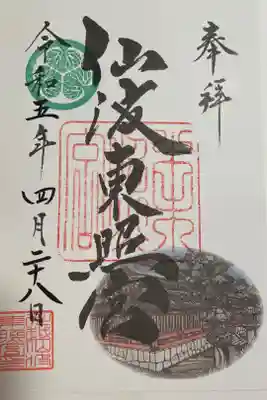 奉拝
仙波東照宮
令和五年四月二十八日